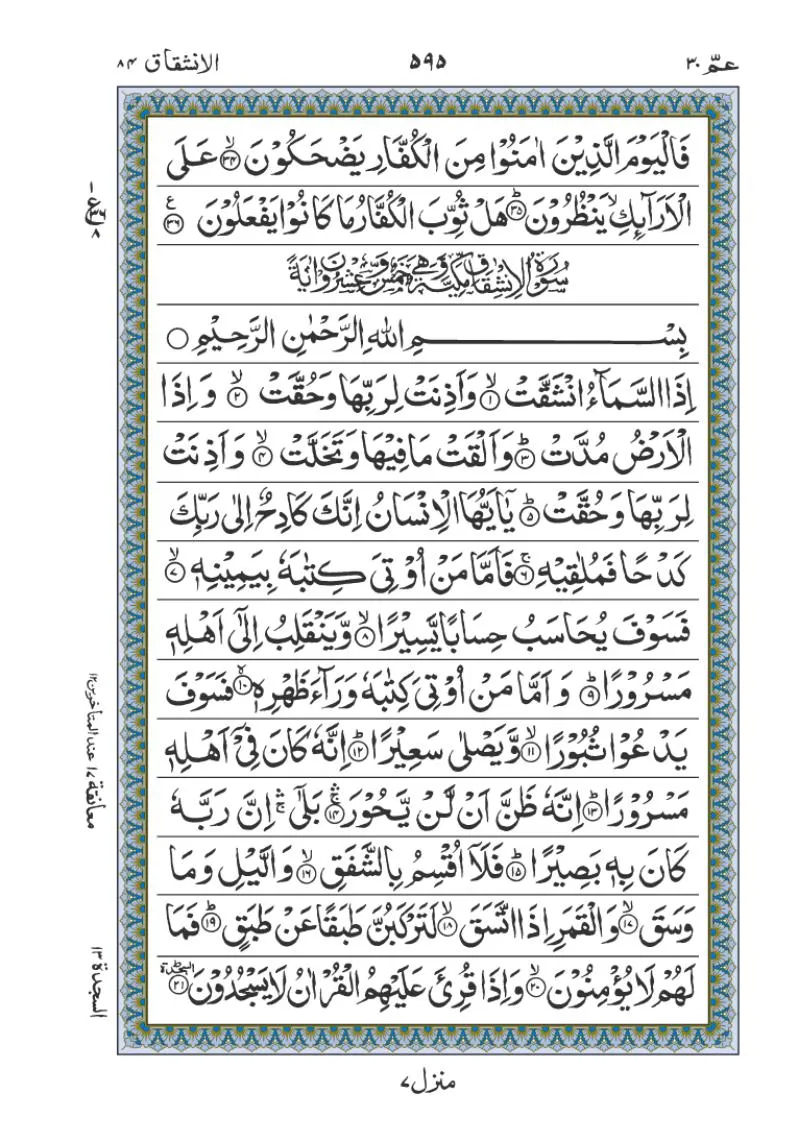 عمّ ۳۰
۵۹۵
الانشقاق ۸۴
فَالْيَوْمَ الَّذِيْنَ اٰمَنُوْا مِنَ الْكُفَّارِ يَضْحَكُوْنَ ﴿۳۴﴾ۙ عَلَى
الْاَرَآئِكِ ۙ يَنْظُرُوْنَ ﴿۳۵﴾ؕ هَلْ ثُوِّبَ الْكُفَّارُ مَا كَانُوْا يَفْعَلُوْنَ ﴿۳۶﴾ع
سُوْرَةُ الْاِنْشِقَاقِ مَكِّيَّةٌ وَّهِيَ خَمْسٌ وَّعِشْرُوْنَ اٰيَةً
بِسْمِ اللّٰهِ الرَّحْمٰنِ الرَّحِيْمِ ○
اِذَا السَّمَآءُ انْشَقَّتْ ﴿۱﴾ۙ وَاَذِنَتْ لِرَبِّهَا وَحُقَّتْ ﴿۲﴾ۙ وَاِذَا
الْاَرْضُ مُدَّتْ ﴿۳﴾ؕ وَاَلْقَتْ مَا فِيْهَا وَتَخَلَّتْ ﴿۴﴾ۙ وَاَذِنَتْ
لِرَبِّهَا وَحُقَّتْ ﴿۵﴾ؕ يٰۤاَيُّهَا الْاِنْسَانُ اِنَّكَ كَادِحٌ اِلٰى رَبِّكَ
كَدْحًا فَمُلٰقِيْهِ ﴿۶﴾ۚ فَاَمَّا مَنْ اُوْتِيَ كِتٰبَهٗ بِيَمِيْنِهٖ ﴿۷﴾ۙ
فَسَوْفَ يُحَاسَبُ حِسَابًا يَّسِيْرًا ﴿۸﴾ۙ وَّيَنْقَلِبُ اِلٰۤى اَهْلِهٖ
مَسْرُوْرًا ﴿۹﴾ؕ وَاَمَّا مَنْ اُوْتِيَ كِتٰبَهٗ وَرَآءَ ظَهْرِهٖ ﴿۱۰﴾ۙ فَسَوْفَ
يَدْعُوْا ثُبُوْرًا ﴿۱۱﴾ۙ وَّيَصْلٰى سَعِيْرًا ﴿۱۲﴾ؕ اِنَّهٗ كَانَ فِيْۤ اَهْلِهٖ
مَسْرُوْرًا ﴿۱۳﴾ؕ اِنَّهٗ ظَنَّ اَنْ لَّنْ يَّحُوْرَ ﴿۱۴﴾ۚۛ بَلٰۤى ۚۛ اِنَّ رَبَّهٗ
كَانَ بِهٖ بَصِيْرًا ﴿۱۵﴾ؕ فَلَاۤ اُقْسِمُ بِالشَّفَقِ ﴿۱۶﴾ۙ وَالَّيْلِ وَمَا
وَسَقَ ﴿۱۷﴾ۙ وَالْقَمَرِ اِذَا اتَّسَقَ ﴿۱۸﴾ۙ لَتَرْكَبُنَّ طَبَقًا عَنْ طَبَقٍ ﴿۱۹﴾ؕ فَمَا
لَهُمْ لَا يُؤْمِنُوْنَ ﴿۲۰﴾ۙ وَاِذَا قُرِئَ عَلَيْهِمُ الْقُرْاٰنُ لَا يَسْجُدُوْنَ ﴿۲۱﴾ السجدة
معانقة ۱۷ عند المتأخرين ۱۲
السجدة ۱۳
منزل ۷